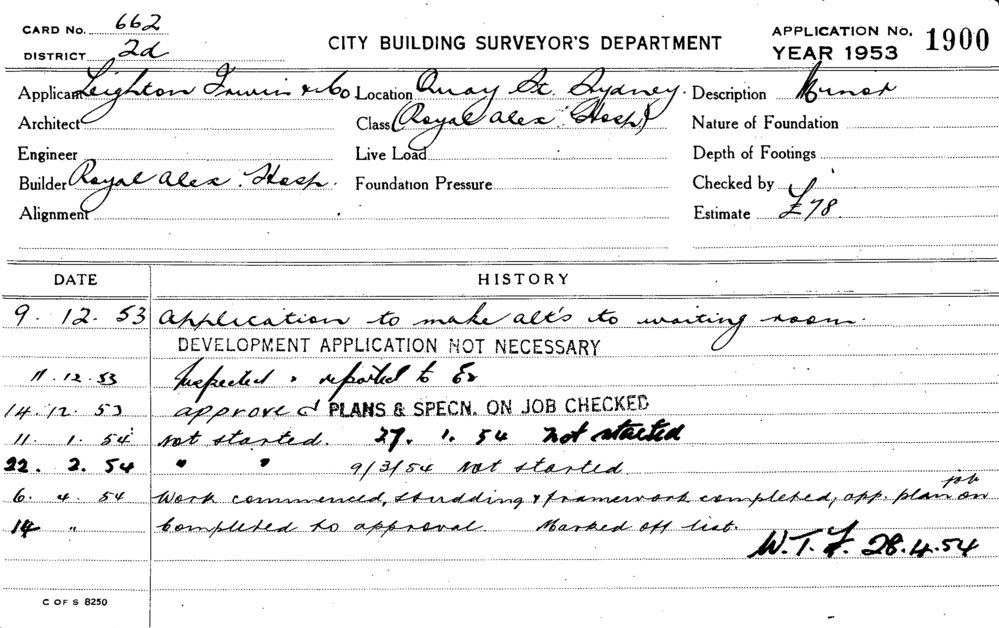 CARD No. 662
DISTRICT 2d
CITY BUILDING SURVEYOR'S DEPARTMENT
APPLICATION No. 1900
YEAR 1953
Applicant Leighton Irwin & Co Location Quay St. Sydney. Description Minor
Architect Class (Royal Alex. Hosp) Nature of Foundation
Engineer Live Load Depth of Footings
Builder Royal Alex. Hosp. Foundation Pressure Checked by
Alignment Estimate £78.
DATE HISTORY
9. 12. 53 Application to make alt's to waiting room.
DEVELOPMENT APPLICATION NOT NECESSARY
11.12.53 Inspected & reported to
14.12.53 approved PLANS & SPECN. ON JOB CHECKED
11. 1. 54 Not started. 27. 1. 54 Not started
22. 2. 54 " " 9/3/54 Not started
6. 4. 54 Work commenced, studding & framework completed, app. plan on job
14 " Completed to approval. Marked off list.
W.T.F. 28.4.54
C OF S 8250